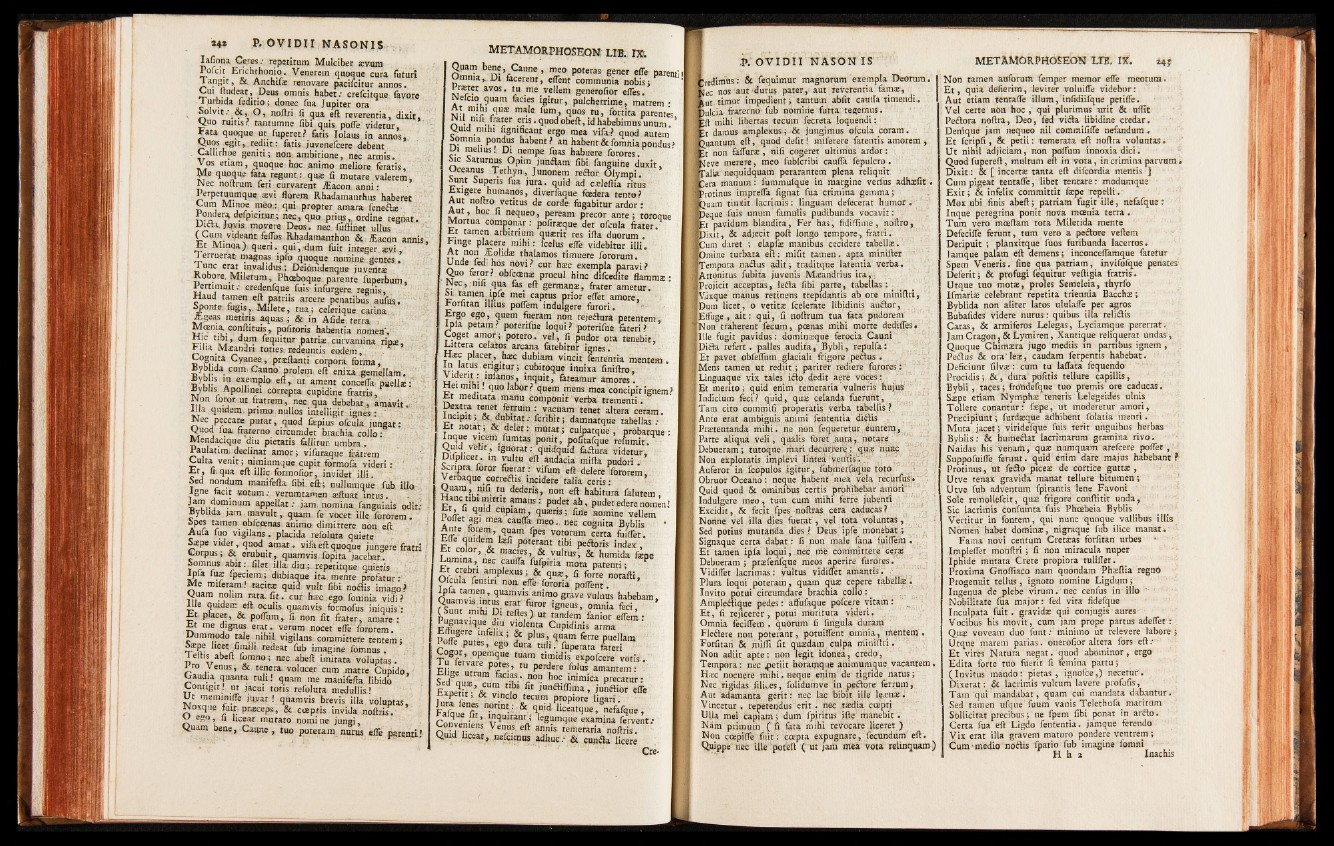 242 P. OVIDII NASONIS
Iasiona Ceres: repetitum Mulciber ævum
Poscit Erichthonio. Venerem quoque cura futuri
Tangit, & Anchisæ renovare paciscitur annos.
Cui studeat, Deus omnis habet: crescitque favore
Turbida seditio; donec sua Jupiter ora
Solvit: &, O, nostri si qua est reverentia, dixit,
Quo ruitis? tantumne sibi quis posse videtur,
Fata quoque ut superet? fatis Iolaus in annos,
Quos egit, rediit: fatis juvenescere debent
Callirhoe geniti; non ambitione, nec armis.
Vos etiam, quoque hoc animo meliore feratis,
Me quoque fata regunt: quæ si mutare valerem,
Nec nostrum seri curvarent Æacon anni:
Perpetuumque ævi florem Rhadamanthus haberet
Cum Minoe meo: qui propter amara senectæ
Pondera despicitur; nec, quo prius, ordine regnat.
Dicta Jovis movere Deos. nec sustinet ullus
(Cum videant fessos Rhadamanthon & Æacon annis,
Et Minoa) queri. qui, dum fuit integer ævi,
Terruerat magnas ipso quoque nomine gentes.
Tunc erat invalidus; Deionidenque juventæ
Robore, Miletum, Phœboque parente superbum,
Pertimuit: credensque suis insurgere regnis,
Haud tamen est patriis arcere penatibus ausus.
Sponte fugis, Milete, tua; celerique carina
Ægeas metiris aquas; & in Aside terra
Mœnia constituis, positoris habentia nomen.
Hic tibi, dum sequitur patriæ curvamina ripæ,
Filia Mæandri toties redeuntis eodem,
Cognita Cyanee, præstanti corpora forma,
Byblida cum Cauno prolem est enixa gemellam.
Byblis in exemplo est, ut ament concessa puellæ:
Byblis Apollinei correpta cupidine fratris,
Non soror ut fratrem, nec qua debebat, amavit.
Illa quidem primo nullos intelligit ignes:
Nec peccare putat, quod sæpius oscula jungat:
Quod sua fraterno circumdet brachia collo:
Mendacique diu pietatis fallitur umbra.
Paulatim declinat amor; visuraque fratrem
Culta venit; nimiumque cupit formosa videri:
Et, si qua est illic formosior, invidet illi.
Sed nondum manifesta sibi est; nullumque sub illo
Igne facit votum: verumtamen æstuat intus.
Jam dominum appellat: jam nomina sanguinis odit:
Byblida jam mavult, quam se vocet ille sororem.
Spes tamen obscœnas animo dimittere non est
Ausa suo vigilans. placida resoluta quiete
Sæpe videt, quod amat. visa est quoque jungere fratri
Corpus; & erubuit, quamvis sopita jacebat.
Somnus abit: silet illa diu: repetitque quietis
Ipsa suæ speciem; dubiaque ita mente profatur:
Me miseram! tacitæ quid vult sibi noctis imago?
Quam nolim rata sit. cur hæc ego somnia vidi?
Ille quidem est oculis quamvis formosus iniquis:
Et placet, & possum, si non sit frater, amare:
Et me dignus erat. verum nocet esse sororem.
Dummodo tale nihil vigilans committere tentem;
Sæpe licet simili redeat sub imagine somnus.
Testis abest somno; nec abest imitata voluptas.
Pro Venus, & tenera volucer cum matre Cupido,
Gaudia quanta tuli! quam me manifesta libido
Contigit! ut jacui totis resoluta medullis!
Ut meminisse juvat! quamvis brevis illa voluptas,
Noxque fuit præceps, & cœptis invida nostris.
O ego, si liceat mutato nomine jungi,
Quam bene, Caune, tuo poteram nurus esse parenti!
METAMORPHOSEON LIB. IX.
Quam bene, Caune, meo poteras gener esse parenti!
Omnia, Di facerent, essent communia nobis;
Præter avos. tu me vellem generosior esses.
Nescio quam facies igitur, pulcherrime, matrem:
At mihi quæ male sum, quos tu, sortita parentes,
Nil nisi frater eris. quod obest, id habebimus unum.
Quid mihi significant ergo mea visa? quod autem
Somnia pondus habent? an habent & somnia pondus?
Di melius! Di nempe suas habuere sorores.
Sic Saturnus Opim junctam sibi sanguine duxit,
Oceanus Tethyn, Junonem rector Olympi.
Sunt Superis sua jura. quid ad cælestia ritus
Exigere humanos, diversaque fœdera tento?
Aut nostro vetitus de corde fugabitur ardor:
Aut, hoc si nequeo, peream precor ante; toroque
Mortua componar: positæque det oscula frater.
Et tamen arbitrium quærit res ista duorum.
Finge placere mihi: scelus esse videbitur illi.
At non Æolidæ thalamos timuere sororum.
Unde sed hos novi? cur hæc exempla paravi?
Quo feror? obscœnæ procul hinc discedite flammæ:
Nec, nisi qua fas est germanæ, frater ametur.
Si tamen ipse mei captus prior esset amore,
Forsitan illius possem indulgere furori.
Ergo ego, quem fueram non rejectura petentem,
Ipsa petam? poterisne loqui? poterisne fateri?
Coget amor; potero. vel, si pudor ora tenebit,
Littera celatos arcana fatebitur ignes.
Hæc placet, hæc dubiam vincit sententia mentem.
In latus erigitur; cubitoque innixa sinistro,
Viderit: insanos, inquit, fateamur amores.
Hei mihi! quo labor? quem mens mea concipit ignem?
Et meditata manu componit verba trementi.
Dextra tenet ferrum: vacuam tenet altera ceram.
Incipit; & dubitat: scribit; damnatque tabellas:
Et notat; & delet: mutat; culpatque, probatque:
Inque vicem sumtas ponit, positasque resumit.
Quid velit, ignorat: quidquid factura videtur,
Displicet. in vultu est audacia mista pudori.
Scripta soror fuerat: visum est delere sororem,
Verbaque correctis incidere talia ceris:
Quam, nisi tu dederis, non est habitura salutem,
Hanc tibi mittit amans: pudet ah, pudet edere nomen!
Et, si quid cupiam, quæris; sine nomine vellem
Posset agi mea caussa meo. nec cognita Byblis
Ante forem, quam spes votorum certa fuisset.
Esse quidem læsi poterant tibi pectoris index,
Et color, & macies, & vultus, & humida sæpe
Lumina, nec caussa suspiria mota patenti;
Et crebri amplexus; & quæ, si forte notasti,
Oscula sentiri non esse sororia possent.
Ipsa tamen, quamvis animo grave vulnus habebam,
Quamvis intus erat furor igneus, omnia feci,
(Sunt mihi Di testes) ut tandem sanior essem:
Pugnavique diu violenta Cupidinis arma
Effugere infelix; & plus, quam ferre puellam
Posse putes, ego dura tuli. superata fateri
Cogor, opemque tuam timidis exposcere votis.
Tu servare potes, tu perdere solus amantem:
Elige utrum facias. non hoc inimica precatur:
Sed quæ, cum tibi sit junctissima, junctior esse
Expetit; & vinclo tecum propiore ligari.
Jura senes norint: & quid liceatque, nefasque,
Fasque sit, inquirant; legumque examina servent:
Conveniens Venus est annis temeraria nostris.
Quid liceat, nescimus adhuc: & cuncta licere
Cre-
P. OVIDII NASONIS
Credimus: & sequimur magnorum exempla Deorum.
Nec nos aut durus pater, aut reverentia famæ,
Aut timor impedient; tantum absit caussa timendi.
Dulcia fraterno sub nomine furta tegemus.
Est mihi libertas tecum secreta loquendi:
Et damus amplexus; & jungimus oscula coram.
Quantum est, quod desit! miserere fatentis amorem,
Et non fassuræ, nisi cogeret ultimus ardor:
Neve merere, meo subscribi caussa sepulcro.
Talia nequidquam perarantem plena reliquit
Cera manum: summusque in margine versus adhæsit.
Protinus impressa signat sua crimina gemma;
Quam tinxit lacrimis: linguam defecerat humor.
Deque suis unum famulis pudibunda vocavit:
Et pavidum blandita, Fer has, fidissime, nostro,
Dixit, & adjecit post longo tempore, fratri.
Cum daret; elapsæ manibus cecidere tabellæ.
Omine turbata est: misit tamen. apta minister
Tempora nactus adit; traditque latentia verba.
Attonitus subita juvenis Mæandrius ira,
Projicit acceptas, lecta sibi parte, tabellas:
Vixque manus retinens trepidantis ab ore ministri,
Dum licet, o vetitæ scelerate libidinis auctor,
Effuge, ait: qui, si nostrum tua fata pudorem
Non traherent secum, pœnas mihi morte dedisses.
Ille fugit pavidus: dominæque ferocia Cauni
Dicta refert. palles audita, Bybli, repulsa:
Et pavet obsessum glaciali frigore pectus.
Mens tamen ut rediit; pariter rediere furores:
Linguaque vix tales icto dedit aere voces:
Et merito; quid enim temeraria vulneris hujus
Indicium feci? quid, quæ celanda fuerunt,
Tam cito commisi properatis verba tabellis?
Ante erat ambiguis animi sententia dictis
Prætentanda mihi. ne non sequeretur euntem,
Parte aliqua veli, qualis foret aura, notare
Debueram; tutoque mari decurrere: quæ nunc
Non exploratis implevi lintea ventis.
Auferor in scopulos igitur, submersaque toto
Obruor Oceano: neque habent mea vela recursus.
Quid quod & ominibus certis prohibebar amori
Indulgere meo, tum cum mihi ferre jubenti
Excidit, & fecit spes nostras cera caducas?
Nonne vel illa dies fuerat, vel tota voluntas,
Sed potius mutanda dies? Deus ipse monebat;
Signaque certa dabat: si non male sana fuissem.
Et tamen ipsa loqui, nec me committere ceræ
Debueram; præsensque meos aperire furores.
Vidisset lacrimas: vultus vidisset amantis.
Plura loqui poteram, quam quæ cepere tabellæ.
Invito potui circumdare brachia collo:
Amplectique pedes: affusaque poscere vitam:
Et, si rejicerer, potui moritura videri.
Omnia fecissem. quorum si singula duram
Flectere non poterant, potuissent omnia, mentem.
Forsitan & missi sit quædam culpa ministri.
Non adiit apte: non legit idonea, credo,
Tempora: nec petiit horamque animumque vacantem.
Hæc nocuere mihi. neque enim de tigride natus;
Nec rigidas silices, solidumve in pectore ferrum,
Aut adamanta gerit: nec lac bibit ille leænæ.
Vincetur. repetendus erit. nec tædia cœpti
Ulla mei capiam; dum spiritus iste manebit.
Nam primum (si fata mihi revocare liceret)
Non cœpisse fuit: cœpta expugnare, secundum est.
Quippe nec ille potest (ut jam mea vota relinquam)
METAMORPHOSEON LIB. IX. 243
Non tamen ausorum semper memor esse meorum.
Et, quia desierim, leviter voluisse videbor:
Aut etiam tentasse illum, insidiisque petiisse.
Vel certe non hoc, qui plurimus urit & ussit
Pectora nostra, Deo, sed victa libidine credar.
Denique jam nequeo nil commisisse nefandum.
Et scripsi, & petii: temerata est nostra voluntas.
Ut nihil adjiciam, non possum innoxia dici.
Quod superest, multum est in vota, in crimina parvum.
Dixit: & [ incertæ tanta est discordia mentis ]
Cum pigeat tentasse, libet tentare: modumque
Exit; & infelix committit sæpe repelli.
Mox ubi finis abest; patriam fugit ille, nefasque:
Inque peregrina ponit nova mœnia terra.
Tum vero mœstam tota Miletida mente
Defecisse ferunt, tum vero a pectore vestem
Deripuit; planxitque suos furibunda lacertos.
Iamque palam est demens; inconcessamque fatetur
Spem Veneris. sine qua patriam, invisosque penates
Deserit; & profugi sequitur vestigia fratris.
Utque tuo motæ, proles Semeleia, thyrso
Ismariæ celebrant repetita trieunia Bacchæ;
Byblida non aliter latos ululasse per agros
Bubasides videre nurus: quibus illa relictis
Caras, & armiferos Lelegas, Lyciamque pererrat.
Jam Cragon, & Lymiren, Xantique reliquerat undas,
Quoque Chimæra jugo mediis in partibus ignem,
Pectus & ora leæ, caudam serpentis habebat.
Deficiunt silvæ: cum tu lassata sequendo
Procidis; &, dura positis tellure capillis,
Bybli, taces; frondesque tuo premis ore caducas.
Sæpe etiam Nymphæ teneris Lelegeides ulnis
Tollere conantur: sæpe, ut moderetur amori,
Præcipiunt; surdæque adhibent solatia menti.
Muta jacet; viridesque suis terit unguibus herbas
Byblis: & humectat lacrimarum gramina rivo.
Naidas his venam, quæ numquam arescere posset,
Supposuisse ferunt. quid enim dare majus habebant?
Protinus, ut secto piceæ de cortice guttæ,
Utve tenax gravida manat tellure bitumen;
Utve sub adventum spirantis lene Favoni
Sole remollescit, quæ frigore constitit unda,
Sic lacrimis consumta suis Phœbeia Byblis
Vertitur in fontem, qui nunc quoque vallibus illis
Nomen habet dominæ, nigraque sub ilice manat.
Fama novi centum Cretæas forsitan urbes
Implesset monstri; si non miracula nuper
Iphide mutata Crete propiora tulisset.
Proxima Gnossiaco nam quondam Phæstia regno
Progenuit tellus, ignoto nomine Ligdum;
Ingenua de plebe virum. nec census in illo
Nobilitate sua major: sed vita fidesque
Inculpata fuit. gravidæ qui conjugis aures
Vocibus his movit, cum jam prope partus adesset:
Quæ voveam duo sunt: minimo ut relevere labore;
Utque marem parias. onerosior altera sors est:
Et vires Natura negat. quod abominor, ergo
Edita forte tuo fuerit si femina partu;
(Invitus mando: pietas, ignosce,) necetur.
Dixerat: & lacrimis vultum lavere profusis,
Tam qui mandabat, quam cui mandata dabantur.
Sed tamen usque suum vanis Telethusa maritum
Sollicitat precibus; ne spem sibi ponat in arcto.
Certa sua est Ligdo sententia. jamque ferendo
Vix erat illa gravem maturo pondere ventrem;
Cum medio noctis spatio sub imagine somni
H h 2 Inachis